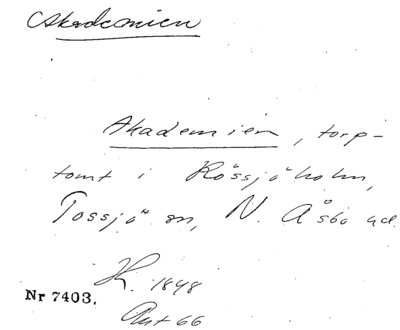 Akademien
Akademien, torp-
tomt i Rössjöholm,
Tossjö sn, N. Åsbo hd.
K. 1848
Nr 7403.
Ant 66